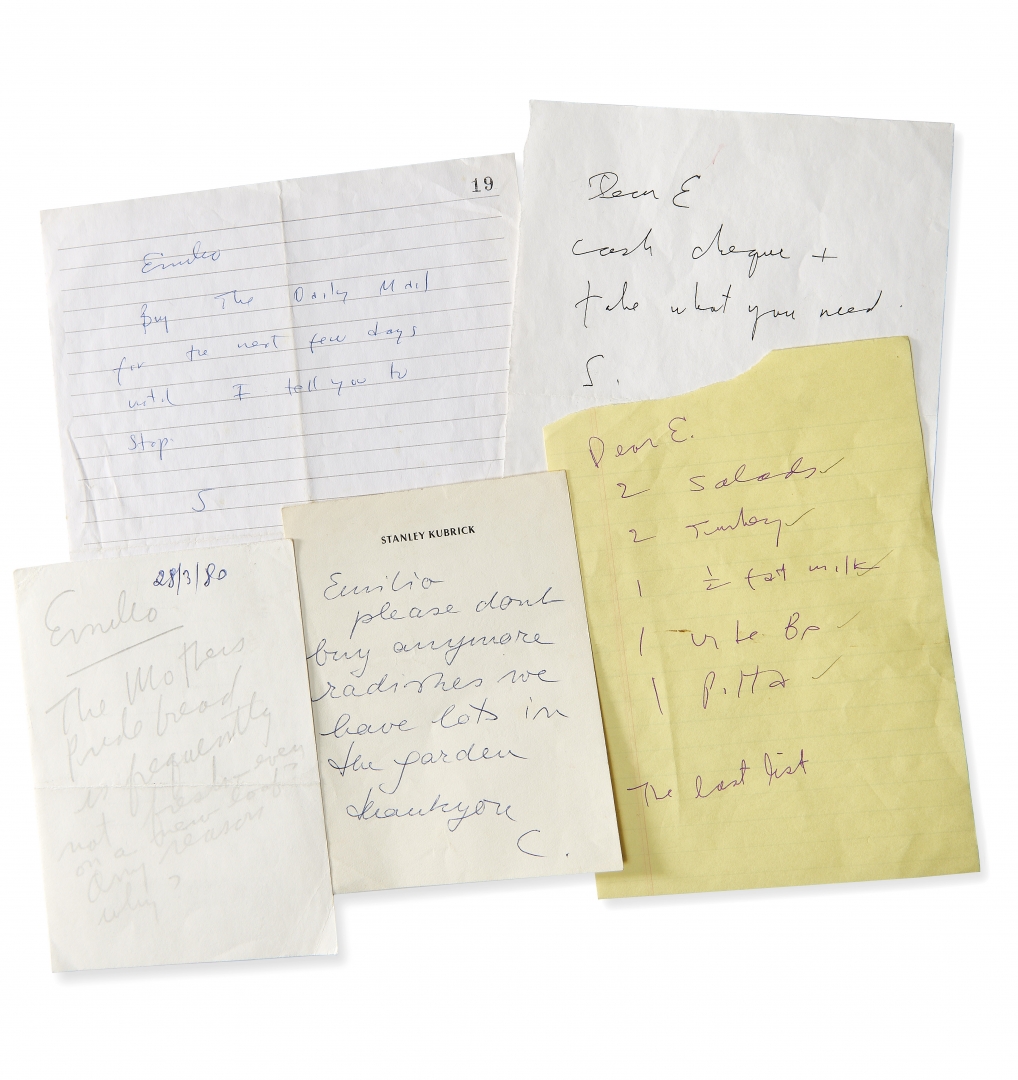 19
Emilio
Buy The Daily Mail
for the next few days
until I tell you to
Stop.
S
Dear E
cash cheque +
take what you need.
S.
Dear E.
2 Salads
2 Turkey
1 ½ fat milk
1 Br
1 Pitta
The last list
28/3/80
Emilio
The Mothers
Pride bread
is frequently
not fresh even
on a new loaf
Any reason
why?
STANLEY KUBRICK
Emilio
please dont
buy anymore
radishes we
have lots in
the garden
thankyou
C.